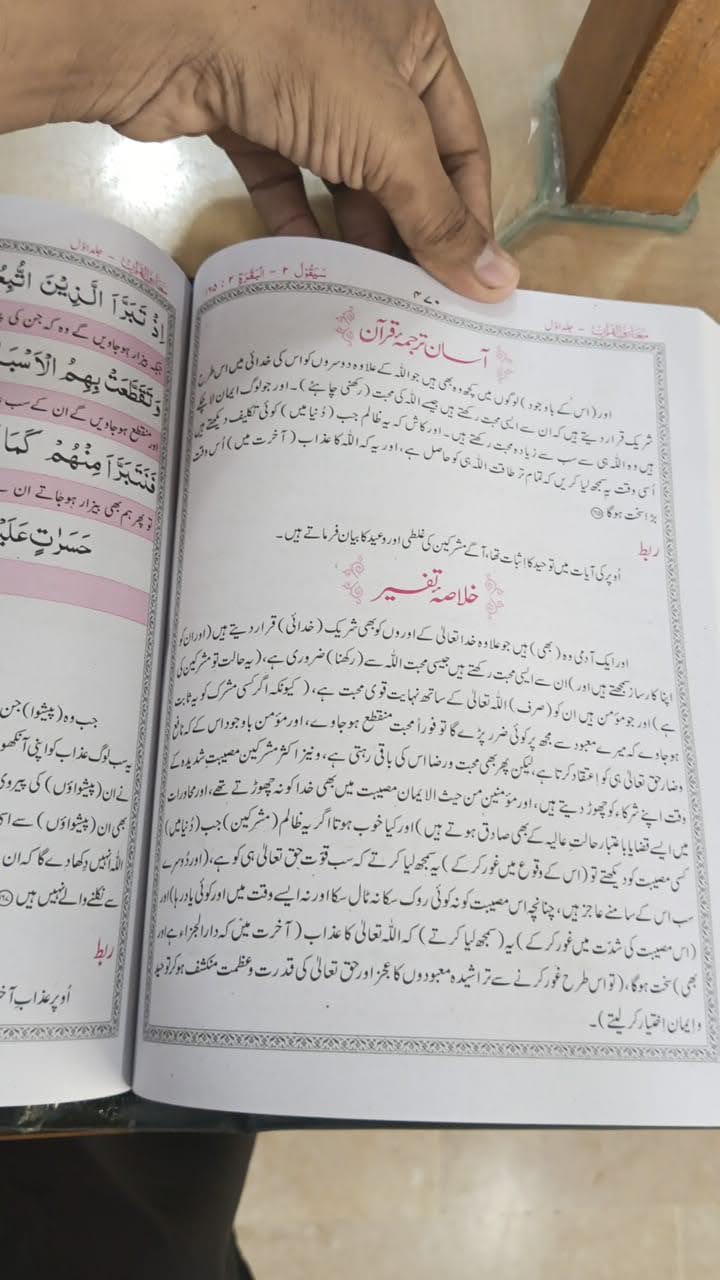 معارف القرآن - جلد اوّل
۴۷۰
سَيَقُول ۲ - اَلْبَقَرَة ۲ : ۱۶۵
آسان ترجمۂ قرآن
اور (اس کے باوجود) لوگوں میں کچھ وہ بھی ہیں جو اللہ کے علاوہ دوسروں کو اس کی خدائی میں اس طرح
شریک قرار دیتے ہیں کہ ان سے ایسی محبت رکھتے ہیں جیسے اللہ کی محبت (رکھنی چاہئے)۔ اور جو لوگ ایمان لا چکے
ہیں وہ اللہ ہی سے سب سے زیادہ محبت رکھتے ہیں۔ اور کاش کہ یہ ظالم جب (دُنیا میں) کوئی تکلیف دیکھتے ہیں
اُسی وقت یہ سمجھ لیا کریں کہ تمام تر طاقت اللہ ہی کو حاصل ہے، اور یہ کہ اللہ کا عذاب (آخرت میں) اُس وقت
بڑا سخت ہوگا ۱۶۵
ربط
اُوپر کی آیات میں توحید کا اثبات تھا، آگے مشرکین کی غلطی اور وعید کا بیان فرماتے ہیں۔
خلاصۂ تفسیر
اور ایک آدمی وہ (بھی) ہیں جو علاوہ خدا تعالیٰ کے اوروں کو بھی شریک (خدائی) قرار دیتے ہیں (اور ان کو
اپنا کارساز سمجھتے ہیں اور) ان سے ایسی محبت رکھتے ہیں جیسی محبت اللہ سے (رکھنا) ضروری ہے، (یہ حالت تو مشرکین کی
ہے) اور جو مؤمن ہیں ان کو (صرف) اللہ تعالیٰ کے ساتھ نہایت قوی محبت ہے، (کیونکہ اگر کسی مشرک کو یہ ثابت
ہو جاوے کہ میرے معبود سے مجھ پر کوئی ضرر پڑے گا تو فوراً محبت منقطع ہو جاوے، اور مؤمن باوجود اس کے کہ نافع
و ضار حق تعالیٰ ہی کو اعتقاد کرتا ہے، لیکن پھر بھی محبت و رضا اس کی باقی رہتی ہے، و نیز اکثر مشرکین مصیبت شدیدہ کے
وقت اپنے شرکاء کو چھوڑ دیتے ہیں، اور مؤمنین من حیث الایمان مصیبت میں بھی خدا کو نہ چھوڑتے تھے، اور محاورات
میں ایسے قضایا باعتبار حالتِ عالیہ کے بھی صادق ہوتے ہیں) اور کیا خوب ہوتا اگر یہ ظالم (مشرکین) جب (دُنیا میں)
کسی مصیبت کو دیکھتے تو (اس کے وقوع میں غور کر کے) یہ سمجھ لیا کرتے کہ سب قوت حق تعالیٰ ہی کو ہے، (اور دُوسرے
سب اس کے سامنے عاجز ہیں، چنانچہ اس مصیبت کو نہ کوئی روک سکا نہ ٹال سکا اور نہ ایسے وقت میں اور کوئی یاد رہا) اور
(اس مصیبت کی شدّت میں غور کر کے) یہ (سمجھ لیا کرتے) کہ اللہ تعالیٰ کا عذاب (آخرت میں کہ دار الجزاء ہے اور
بھی) سخت ہوگا، (تو اس طرح غور کرنے سے تراشیدہ معبودوں کا عجز اور حق تعالیٰ کی قدرت و عظمت منکشف ہو کر توحید
و ایمان اختیار کر لیتے)۔
معارف القرآن - جلد اوّل
اِذْ تَبَرَّاَ الَّذِيْنَ اتُّبِعُ
جبکہ بیزار ہو جاویں گے وہ کہ جن کی
وَتَقَطَّعَتْ بِهِمُ الْاَسْبَا
اور منقطع ہو جاویں گے ان کے سب
فَنَتَبَرَّاَ مِنْهُمْ كَمَا
تو پھر ہم بھی بیزار ہو جاتے ان
حَسَرٰتٍ عَلَيْ
جب وہ (پیشوا) جن
یہ سب لوگ عذاب کو اپنی آنکھو
نے ان (پیشواؤں) کی پیروی
بھی ان (پیشواؤں) سے اس
اللہ انہیں دکھا دے گا کہ ان
سے نکلنے والے نہیں ہیں
ربط
اُوپر عذاب آخ